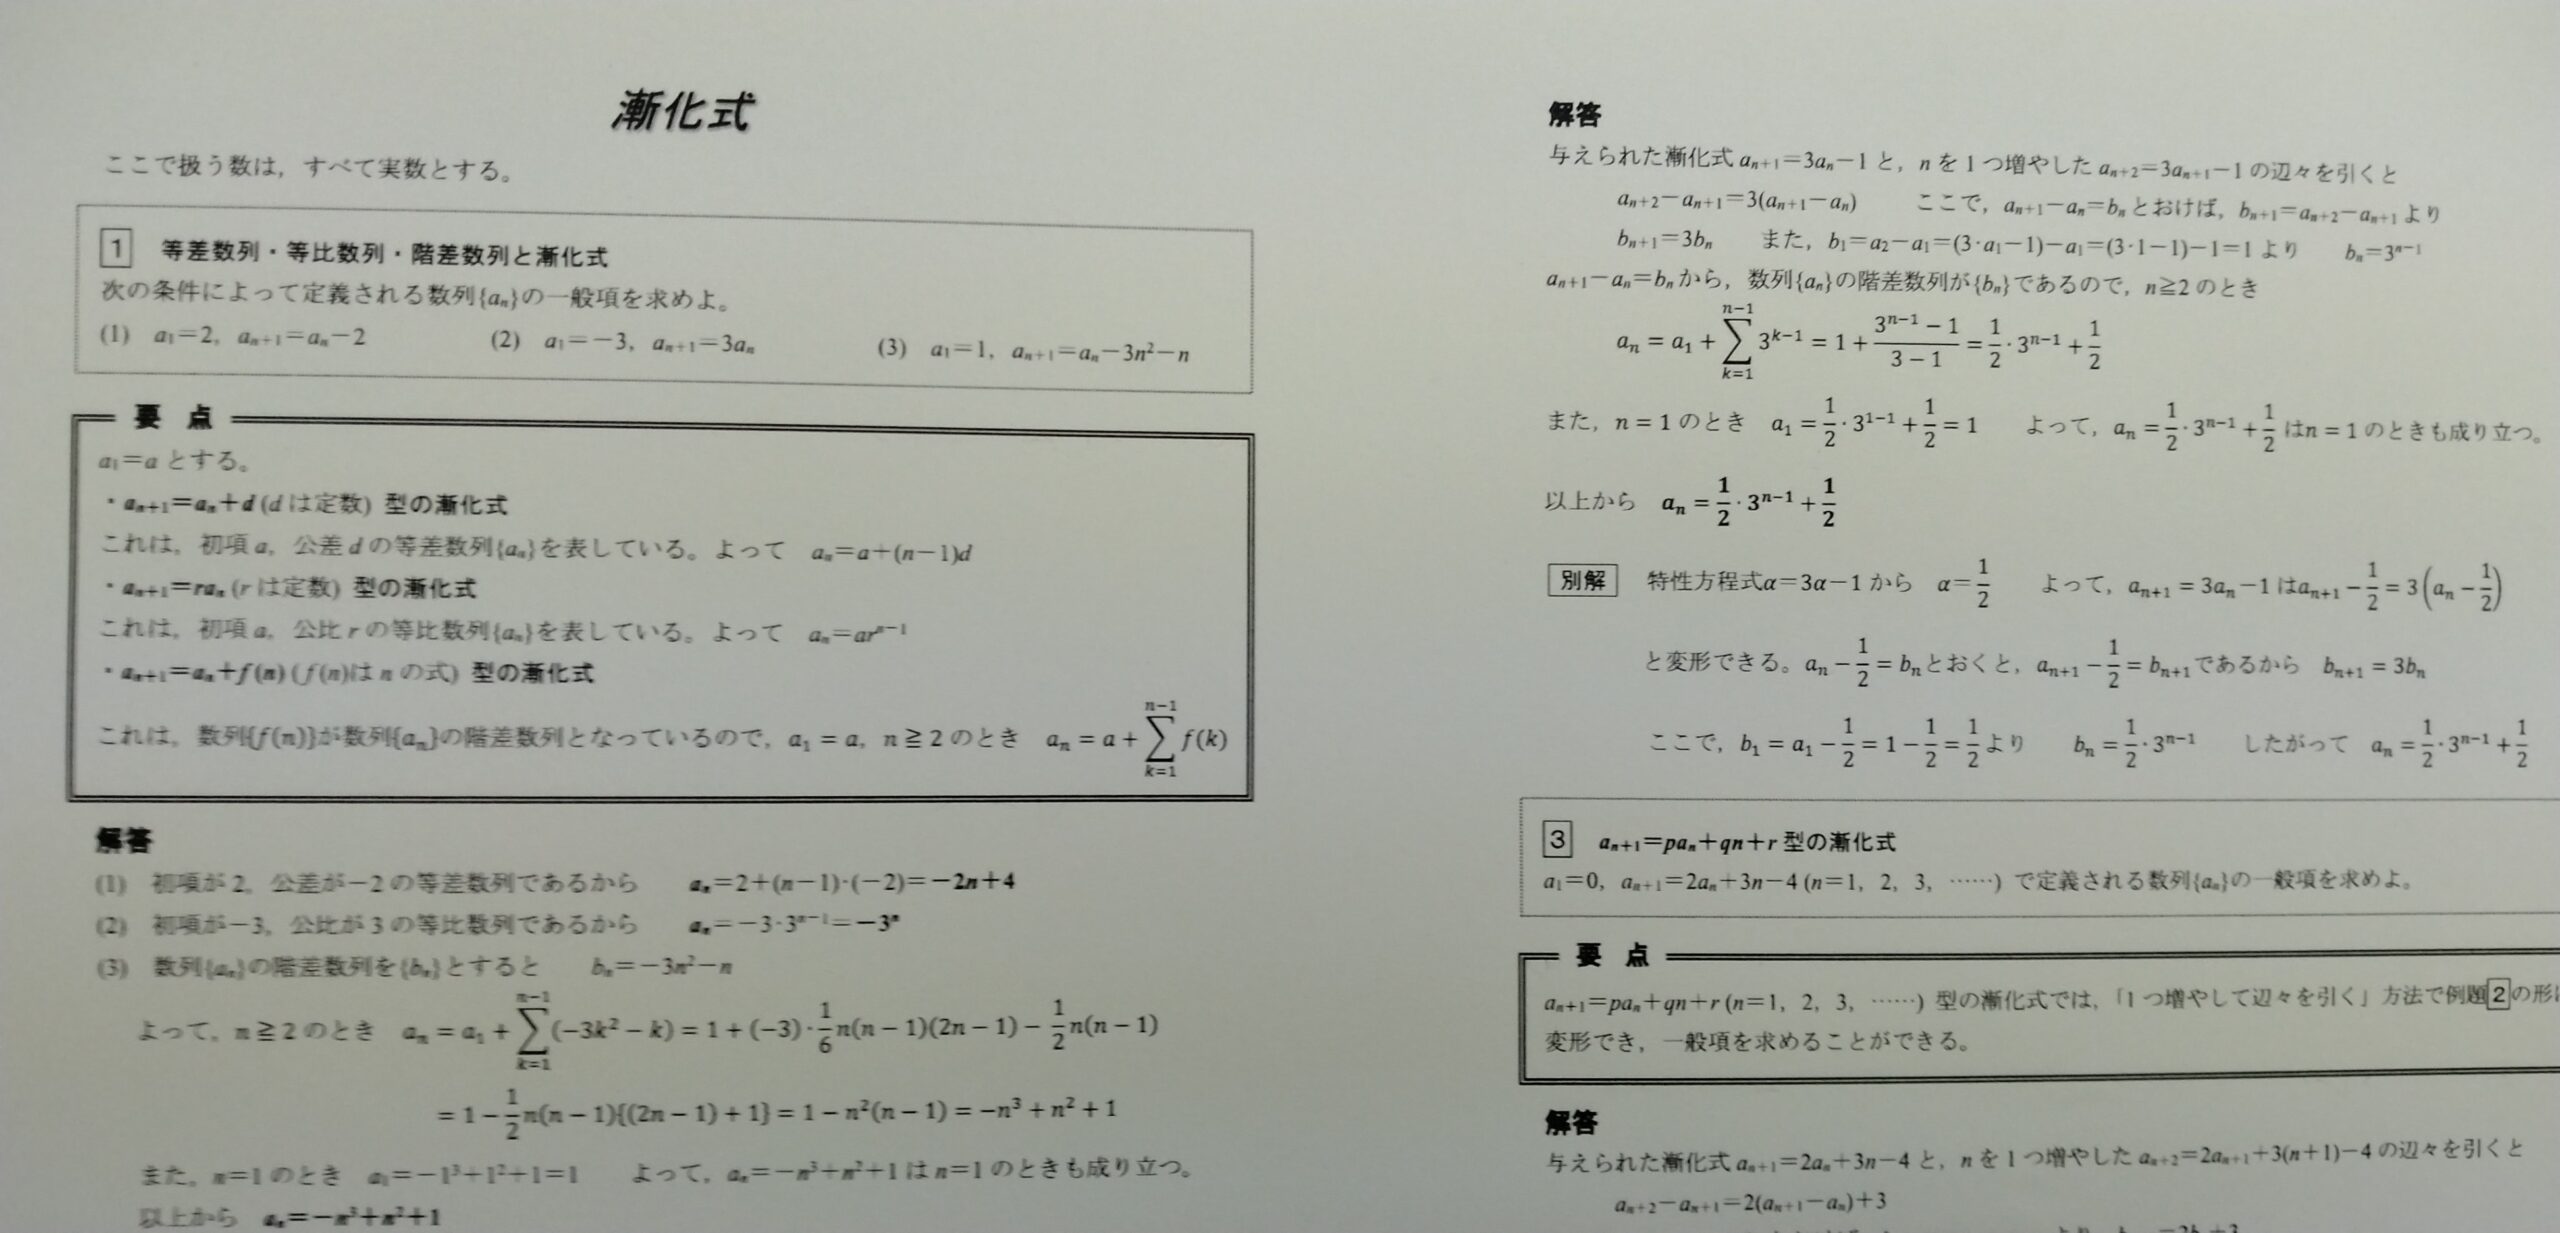 漸化式
ここで扱う数は，すべて実数とする。
1 等差数列・等比数列・階差数列と漸化式
次の条件によって定義される数列{aₙ}の一般項を求めよ。
(1) a₁=2, aₙ₊₁=aₙ−2 (2) a₁=−3, aₙ₊₁=3aₙ (3) a₁=1, aₙ₊₁=aₙ−3n²−n
要 点
a₁=a とする。
・aₙ₊₁=aₙ+d (d は定数) 型の漸化式
これは，初項 a，公差 d の等差数列{aₙ}を表している。よって aₙ=a+(n−1)d
・aₙ₊₁=raₙ (r は定数) 型の漸化式
これは，初項 a，公比 r の等比数列{aₙ}を表している。よって aₙ=arⁿ⁻¹
・aₙ₊₁=aₙ+f(n) (f(n)は n の式) 型の漸化式
これは，数列{f(n)}が数列{aₙ}の階差数列となっているので，a₁ = a，n ≧ 2 のとき aₙ = a + ∑_{k=1}^{n−1} f(k)
解答
(1) 初項が 2，公差が−2 の等差数列であるから aₙ=2+(n−1)·(−2)=−2n+4
(2) 初項が−3，公比が 3 の等比数列であるから aₙ=−3·3ⁿ⁻¹=−3ⁿ
(3) 数列{aₙ}の階差数列を{bₙ}とすると bₙ=−3n²−n
よって，n ≧ 2 のとき aₙ = a₁ + ∑_{k=1}^{n−1} (−3k² − k) = 1 + (−3)·1/6 n(n − 1)(2n − 1) − 1/2 n(n − 1)
= 1 − 1/2 n(n − 1){(2n − 1) + 1} = 1 − n²(n − 1) = −n³ + n² + 1
また，n=1 のとき a₁=−1³+1²+1=1 よって，aₙ=−n³+n²+1 は n=1 のときも成り立つ。
以上から aₙ=−n³+n²+1
解答
与えられた漸化式 aₙ₊₁=3aₙ−1 と，n を 1 つ増やした aₙ₊₂=3aₙ₊₁−1 の辺々を引くと
aₙ₊₂−aₙ₊₁=3(aₙ₊₁−aₙ) ここで，aₙ₊₁−aₙ=bₙ とおけば，bₙ₊₁=aₙ₊₂−aₙ₊₁ より
bₙ₊₁=3bₙ また，b₁=a₂−a₁=(3·a₁−1)−a₁=(3·1−1)−1=1 より bₙ=3ⁿ⁻¹
aₙ₊₁−aₙ=bₙ から，数列{aₙ}の階差数列が{bₙ}であるので，n≧2 のとき
aₙ = a₁ + ∑_{k=1}^{n−1} 3ᵏ⁻¹ = 1 + (3ⁿ⁻¹ − 1)/(3 − 1) = 1/2 · 3ⁿ⁻¹ + 1/2
また，n = 1 のとき a₁ = 1/2 · 3¹⁻¹ + 1/2 = 1 よって，aₙ = 1/2 · 3ⁿ⁻¹ + 1/2 はn = 1 のときも成り立つ。
以上から aₙ = 1/2 · 3ⁿ⁻¹ + 1/2
別解 特性方程式α=3α−1 から α=1/2 よって，aₙ₊₁ = 3aₙ − 1 はaₙ₊₁ − 1/2 = 3(aₙ − 1/2)
と変形できる。aₙ − 1/2 = bₙとおくと，aₙ₊₁ − 1/2 = bₙ₊₁であるから bₙ₊₁ = 3bₙ
ここで，b₁ = a₁ − 1/2 = 1 − 1/2 = 1/2 より bₙ = 1/2 · 3ⁿ⁻¹ したがって aₙ = 1/2 · 3ⁿ⁻¹ + 1/2
3 aₙ₊₁=paₙ+qn+r 型の漸化式
a₁=0, aₙ₊₁=2aₙ+3n−4 (n=1, 2, 3, ……) で定義される数列{aₙ}の一般項を求めよ。
要 点
aₙ₊₁=paₙ+qn+r (n=1, 2, 3, ……) 型の漸化式では，「1 つ増やして辺々を引く」方法で例題2の形に
変形でき，一般項を求めることができる。
解答
与えられた漸化式 aₙ₊₁=2aₙ+3n−4 と，n を 1 つ増やした aₙ₊₂=2aₙ₊₁+3(n+1)−4 の辺々を引くと
aₙ₊₂−aₙ₊₁=2(aₙ₊₁−aₙ)+3